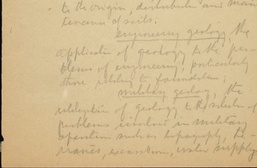 to the origin, distribution and main-
tenance of soils.
Engineering geology, the
application of geology to the pro-
blems of engineering, particularly
those relating to foundations;
military geology, the
utilization of geology to the solution of
problems involved in military
operations such as topography,
excavations, water supply